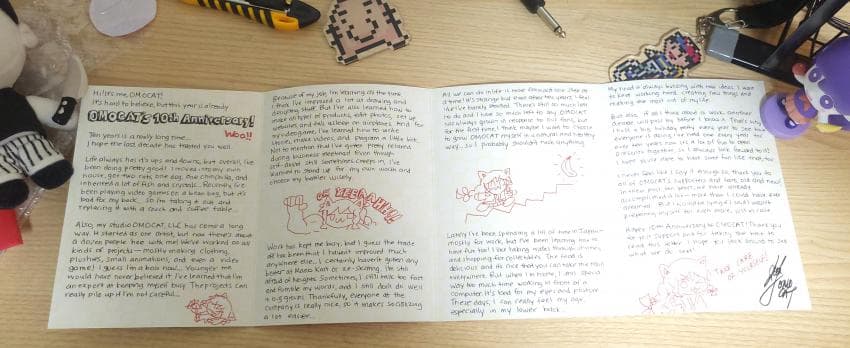 Hi! It's me, OMOCAT!
It's hard to believe, but this year is already
OMOCAT'S 10th Anniversary!
Woo!!
Ten years is a really long time...
I hope the last decade has treated you well.
Life always has it's ups and downs, but overall, I've
been doing pretty good! I moved into my own
house, got two cats, one dog, one chinchilla, and
inherited a lot of fish and crystals. Recently, I've
been playing video games on a bean bag, but it's
bad for my back... so I'm taking it out and
replacing it with a couch and coffee table...
Also, my studio OMOCAT, LLC has come a long
way. It started as one artist, but now there's about
a dozen people here with me! We've worked on all
kinds of projects — mostly making clothing,
plushies, small animations, and even a video
game! I guess I'm a boss now... Younger me
would have never believed it! I've learned that I'm
an expert at keeping myself busy. The projects can
really pile up if I'm not careful...
Because of my job, I'm learning all the time.
I think I've improved a lot as drawing and
designing stuff. But I've also learned how to
make all types of products, edit photos, set up
websites, and fall asleep on airplanes. And for
my video game, I've learned how to write
stories, make videos, and program a little bit.
Not to mention that I've gotten pretty relaxed
during business meetings! Even though
self-doubt still sometimes creeps in, I've
learned to stand up for my own worth and
choose my battles wisely.
OH YEEAAHH!!
Work has kept me busy, and I guess the trade
off has been that I haven't improved much
anywhere else. I certainly haven't gotten any
better at Mario Kart or ice-skating. I'm still
afraid of heights. Sometimes, I still talk too fast
and fumble my words, and I still don't do well
in big groups. Thankfully, everyone at the
company is really nice, so it makes socializing
a lot easier...
All we can do in life is move forward one step at
a time! It's strange but even after ten years, I feel
like I've barely started. There's still so much left
to do and I have so much left to say. OMOCAT
was always grown in response to its fans, but
for the first time, I think maybe I want to choose
to grow OMOCAT myself in a certain and healthy
way... so I probably shouldn't rush anything.
Lately I've been spending a lot of time in Japan —
mostly for work, but I've been learning how to
have fun too! I like taking walks, thrifting clothes,
and shopping for collectables. The food is
delicious and it's nice that you can take the train
everywhere. But when I'm home, I still spend
way too much time working in front of a
computer. It's bad for my eyes and posture.
These days, I can really feel my age,
especially in my lower back...
My head is always buzzing with new ideas. I want
to keep working hard, creating new things and
making the most out of my life.
But also, if all I think about is work, another
decade will pass by before I know it. That's why
I host a big holiday party every year to see how
everyone is doing. I've held it every year for
over ten years now. It's a lot of fun to open
presents together, so I always look forward to it!
I hope you'll get to have some fun like that, too.
I never feel like I say it enough so, thank you to
all of OMOCAT'S supporters and fans, old and new!
In these past ten years, we have already
accomplished a lot more than I could have ever
dreamed. But I would be lying if I said I wasn't
preparing myself for much more still to come.
Happy 10th Anniversary to OMOCAT! Thank you
for your support and for taking the time to
read this letter. I hope you'll stick around to see
what we do next!
TAKE CARE OF YOURSELF!
OMO
CAT